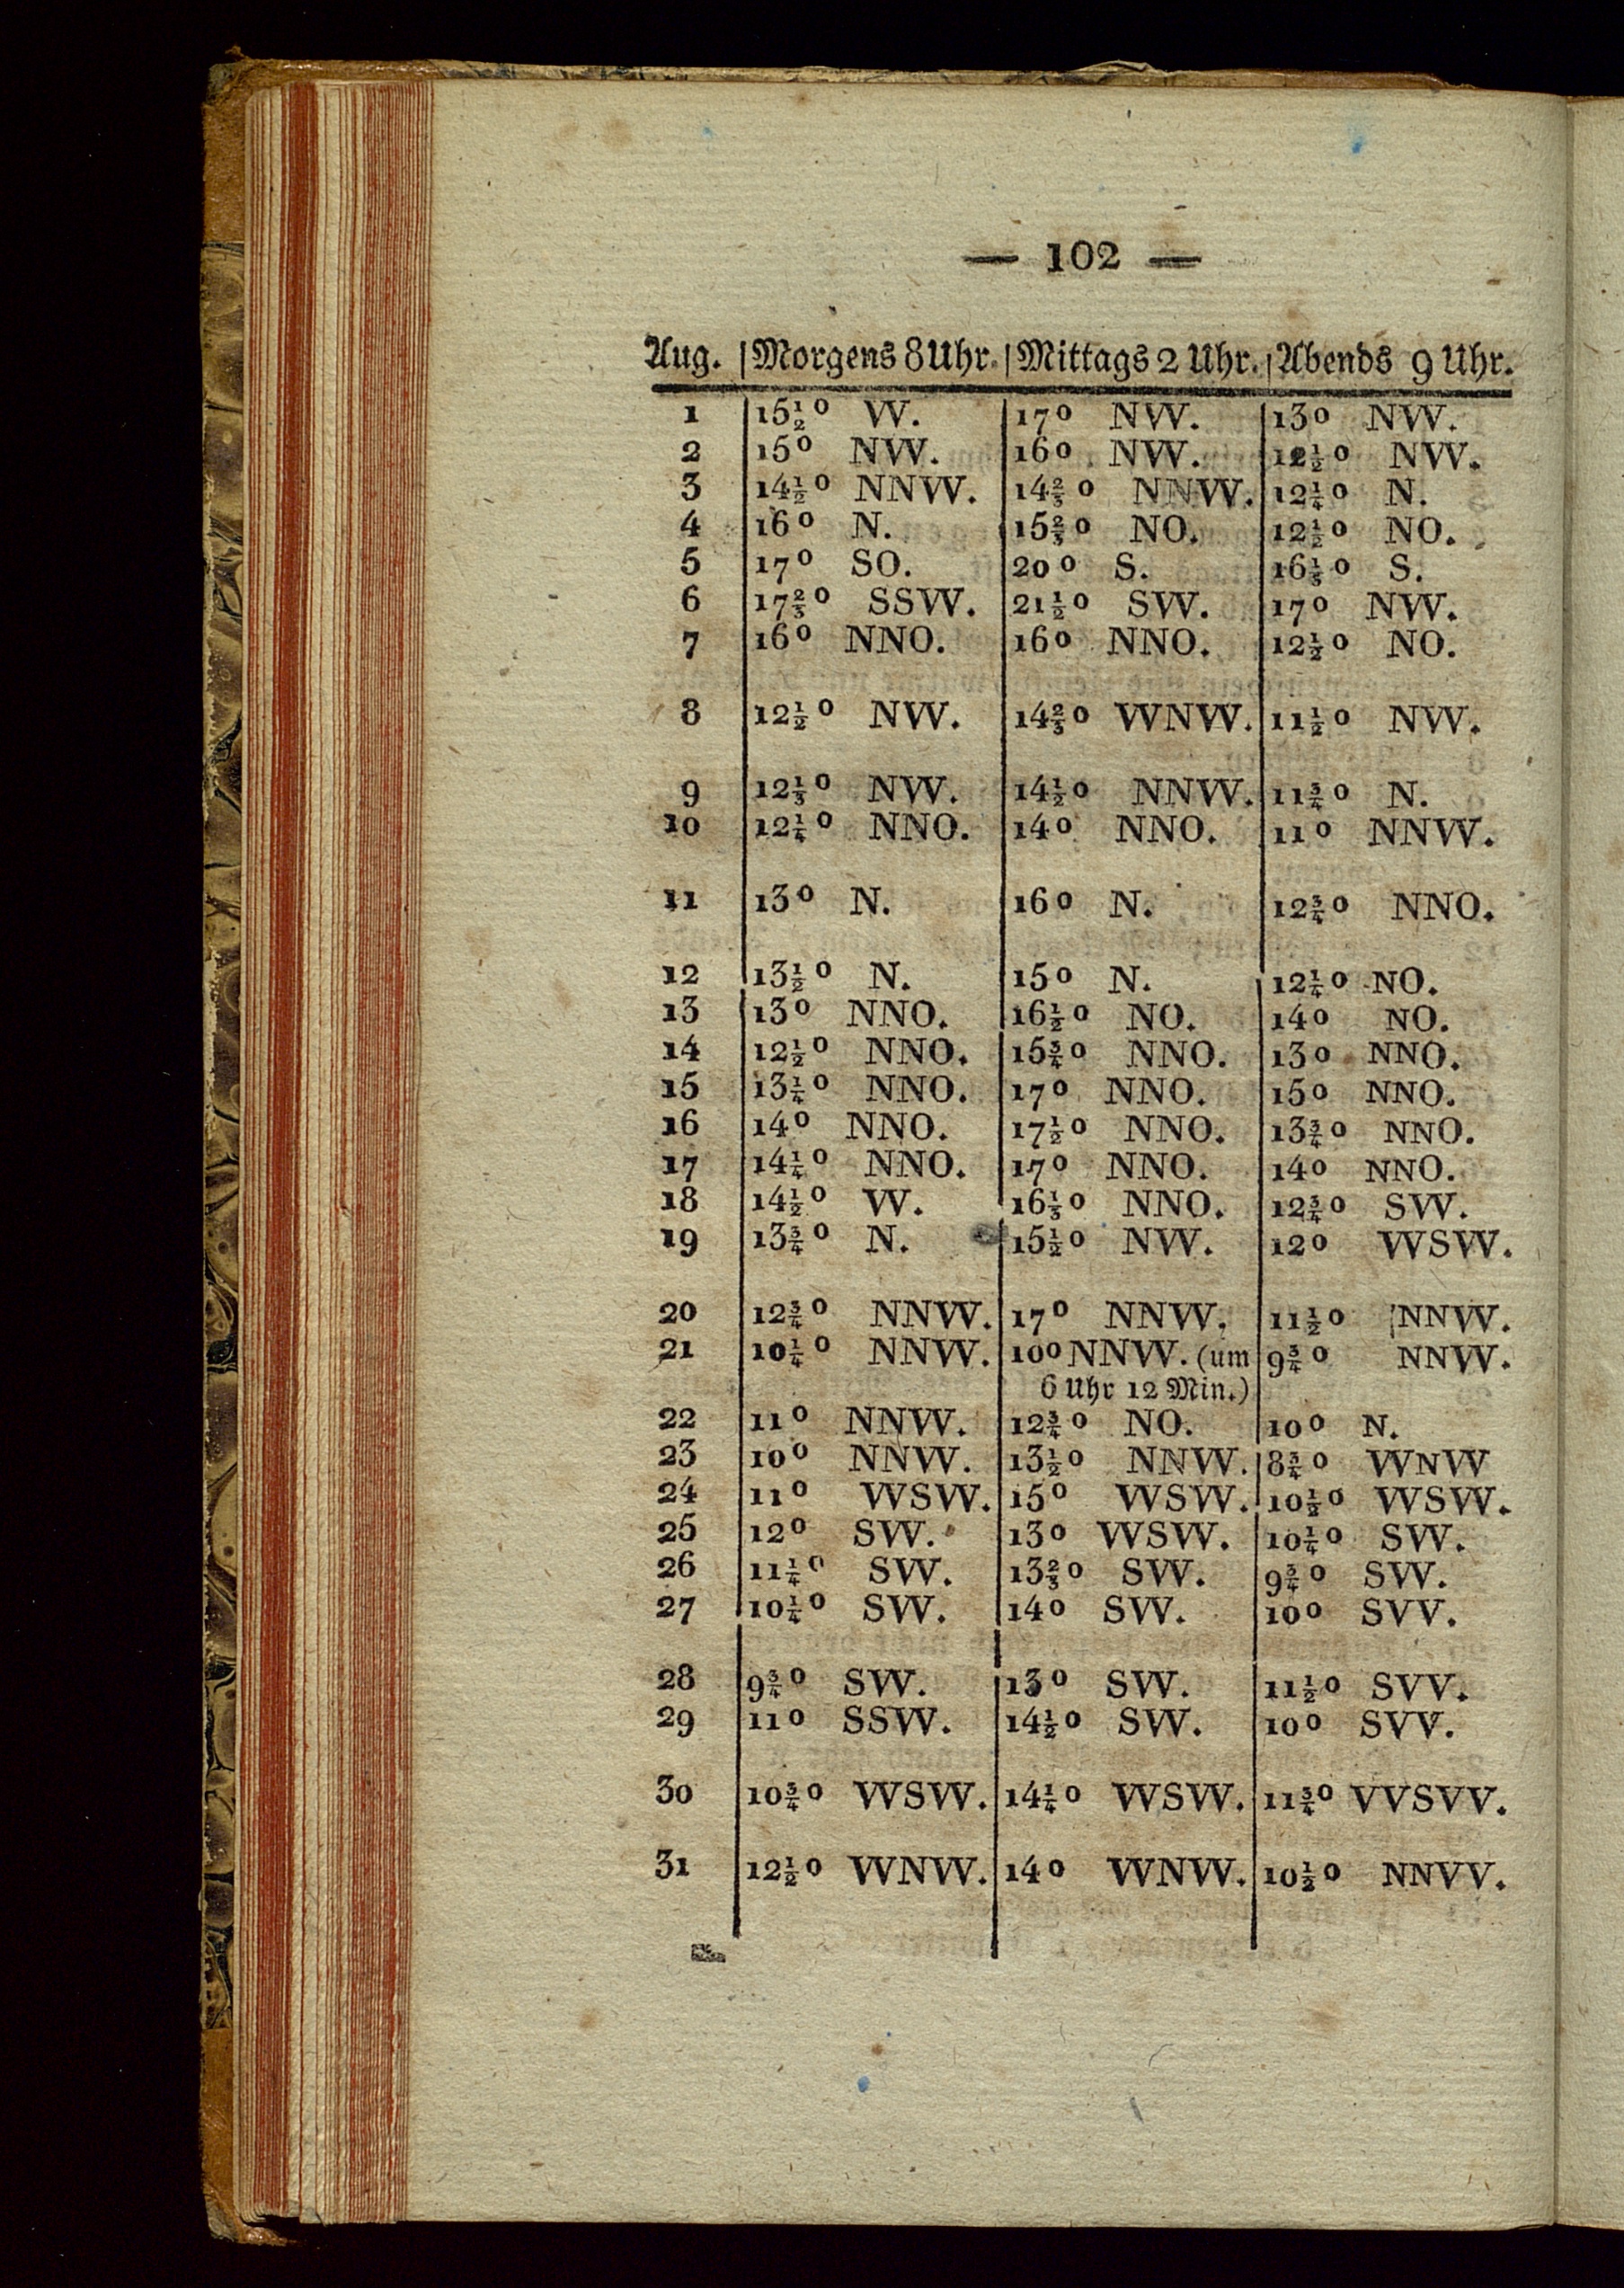 — 102 —
Aug. | Morgens 8 Uhr. | Mittags 2 Uhr. | Abends 9 Uhr.
1 | 15½° W. | 17° NW. | 13° NW.
2 | 15° NW. | 16° NW. | 12½° NW.
3 | 14½° NNW. | 14⅔° NNW. | 12¼° N.
4 | 16° N. | 15⅔° NO. | 12½° NO.
5 | 17° SO. | 20° S. | 16⅓° S.
6 | 17⅔° SSW. | 21½° SW. | 17° NW.
7 | 16° NNO. | 16° NNO. | 12½° NO.
8 | 12½° NW. | 14⅔° WNW. | 11½° NW.
9 | 12⅓° NW. | 14½° NNW. | 11¾° N.
10 | 12¼° NNO. | 14° NNO. | 11° NNW.
11 | 13° N. | 16° N. | 12¾° NNO.
12 | 13½° N. | 15° N. | 12¼° NO.
13 | 13° NNO. | 16½° NO. | 14° NO.
14 | 12½° NNO. | 15¾° NNO. | 13° NNO.
15 | 13¼° NNO. | 17° NNO. | 15° NNO.
16 | 14° NNO. | 17½° NNO. | 13¾° NNO.
17 | 14¼° NNO. | 17° NNO. | 14° NNO.
18 | 14½° W. | 16⅓° NNO. | 12¾° SW.
19 | 13¾° N. | 15½° NW. | 12° WSW.
20 | 12¾° NNW. | 17° NNW. | 11½° NNW.
21 | 10¼° NNW. | 10° NNW. (um | 9¾° NNW.
6 Uhr 12 Min.)
22 | 11° NNW. | 12¾° NO. | 10° N.
23 | 10° NNW. | 13½° NNW. | 8¾° WNW
24 | 11° WSW. | 15° WSW. | 10½° WSW.
25 | 12° SW. | 13° WSW. | 10¼° SW.
26 | 11¼° SW. | 13⅔° SW. | 9¾° SW.
27 | 10¼° SW. | 14° SW. | 10° SW.
28 | 9¾° SW. | 13° SW. | 11½° SW.
29 | 11° SSW. | 14½° SW. | 10° SW.
30 | 10¾° WSW. | 14¼° WSW. | 11¾° WSW.
31 | 12½° WNW. | 14° WNW. | 10½° NNW.